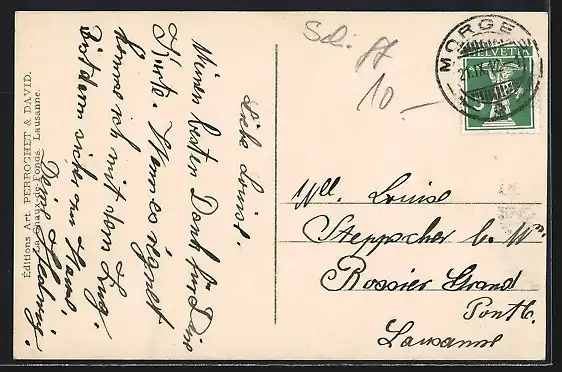 Liebe Louise.
Meinen besten Dank für Deine
Karte. Wenn es regnet
komme ich mit dem Zug.
Bist dann sicher zu Haus.
Deine Hedwig.
Éditions Art. PERROCHET & DAVID.
La Chaux-de-Fonds. Lausanne.
10.-
MORGE
HELVETIA
Mll. Louise
Steppacher b. Mm.
Rossier Grand
Pont 6.
Lausanne